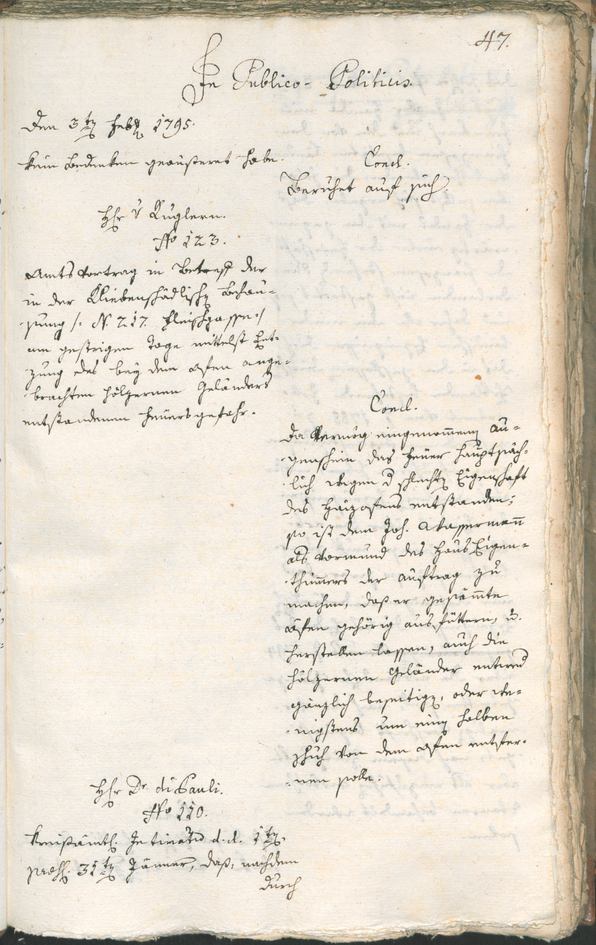 47.
In Publico-Politicis.
Den 3ten Febr. 1795.
kein Bedenken geäusseret habe.
Concl.
Beruhet auf sich.
Hr. v. Kuglern.
No 123.
Amtsvortrag in Betreff der
in der Kliebenschädlisch. Behau-
sung /: N. 217. Fleischgasse :/
am gestrigen Tage mittelst
zung des bey dem Ofen ange-
brachten hölzernen Geländers
entstandenen Feuersgefahr.
Concl.
Da vermög eingenommenen Au-
genschein das Feuer hauptsäch-
lich wegen d. schlechten Eigenschaft
des Heizofens entstanden;
so ist dem Joh. Wassermann
als Vormund des Haus Eigen-
thümmers der Auftrag zu
machen, daß er gesammte
Ofen gehörig ausfüttern, u.
herstellen lassen, auch die
hölzernen Geländer entwed.
gänzlich beseitigen, oder we-
nigstens um einen halben
Schuh von dem Ofen entfer-
nen solle.
Hr. Dr. di Pauli.
No 110.
Kreisämtl. Intimatum d.d. 1ten
praes. 31ten Jänner, daß, nachdem
durch